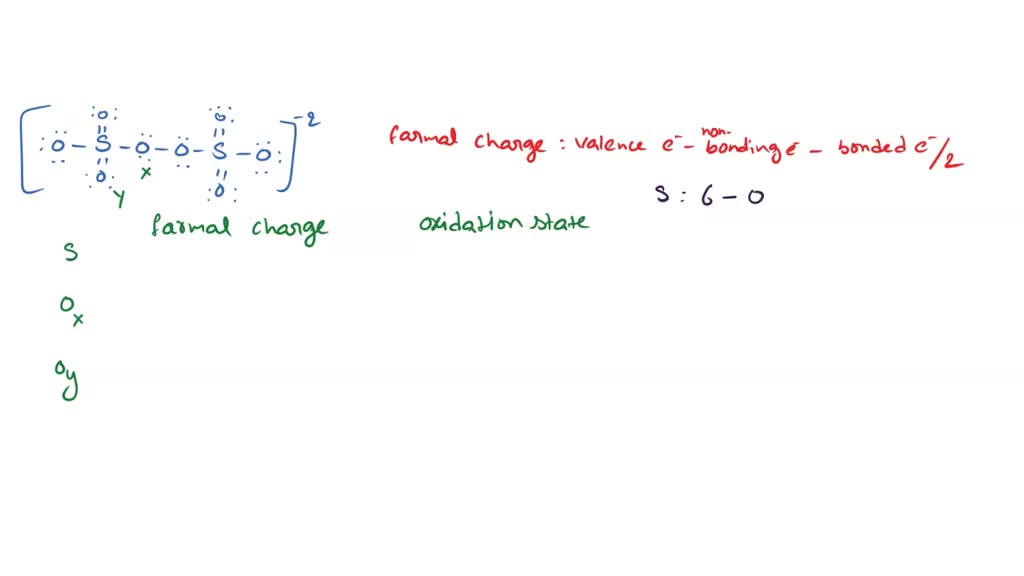 :Ö: :Ö:
[ :Ö – S – Ö – Ö – S – Ö: ]⁻²
:O: x :O:
y
farmal charge : valence e⁻ – non-bonding e⁻ – bonded e⁻/2
S : 6 – 0
farmal charge oxidation state
S
Oₓ
Oy